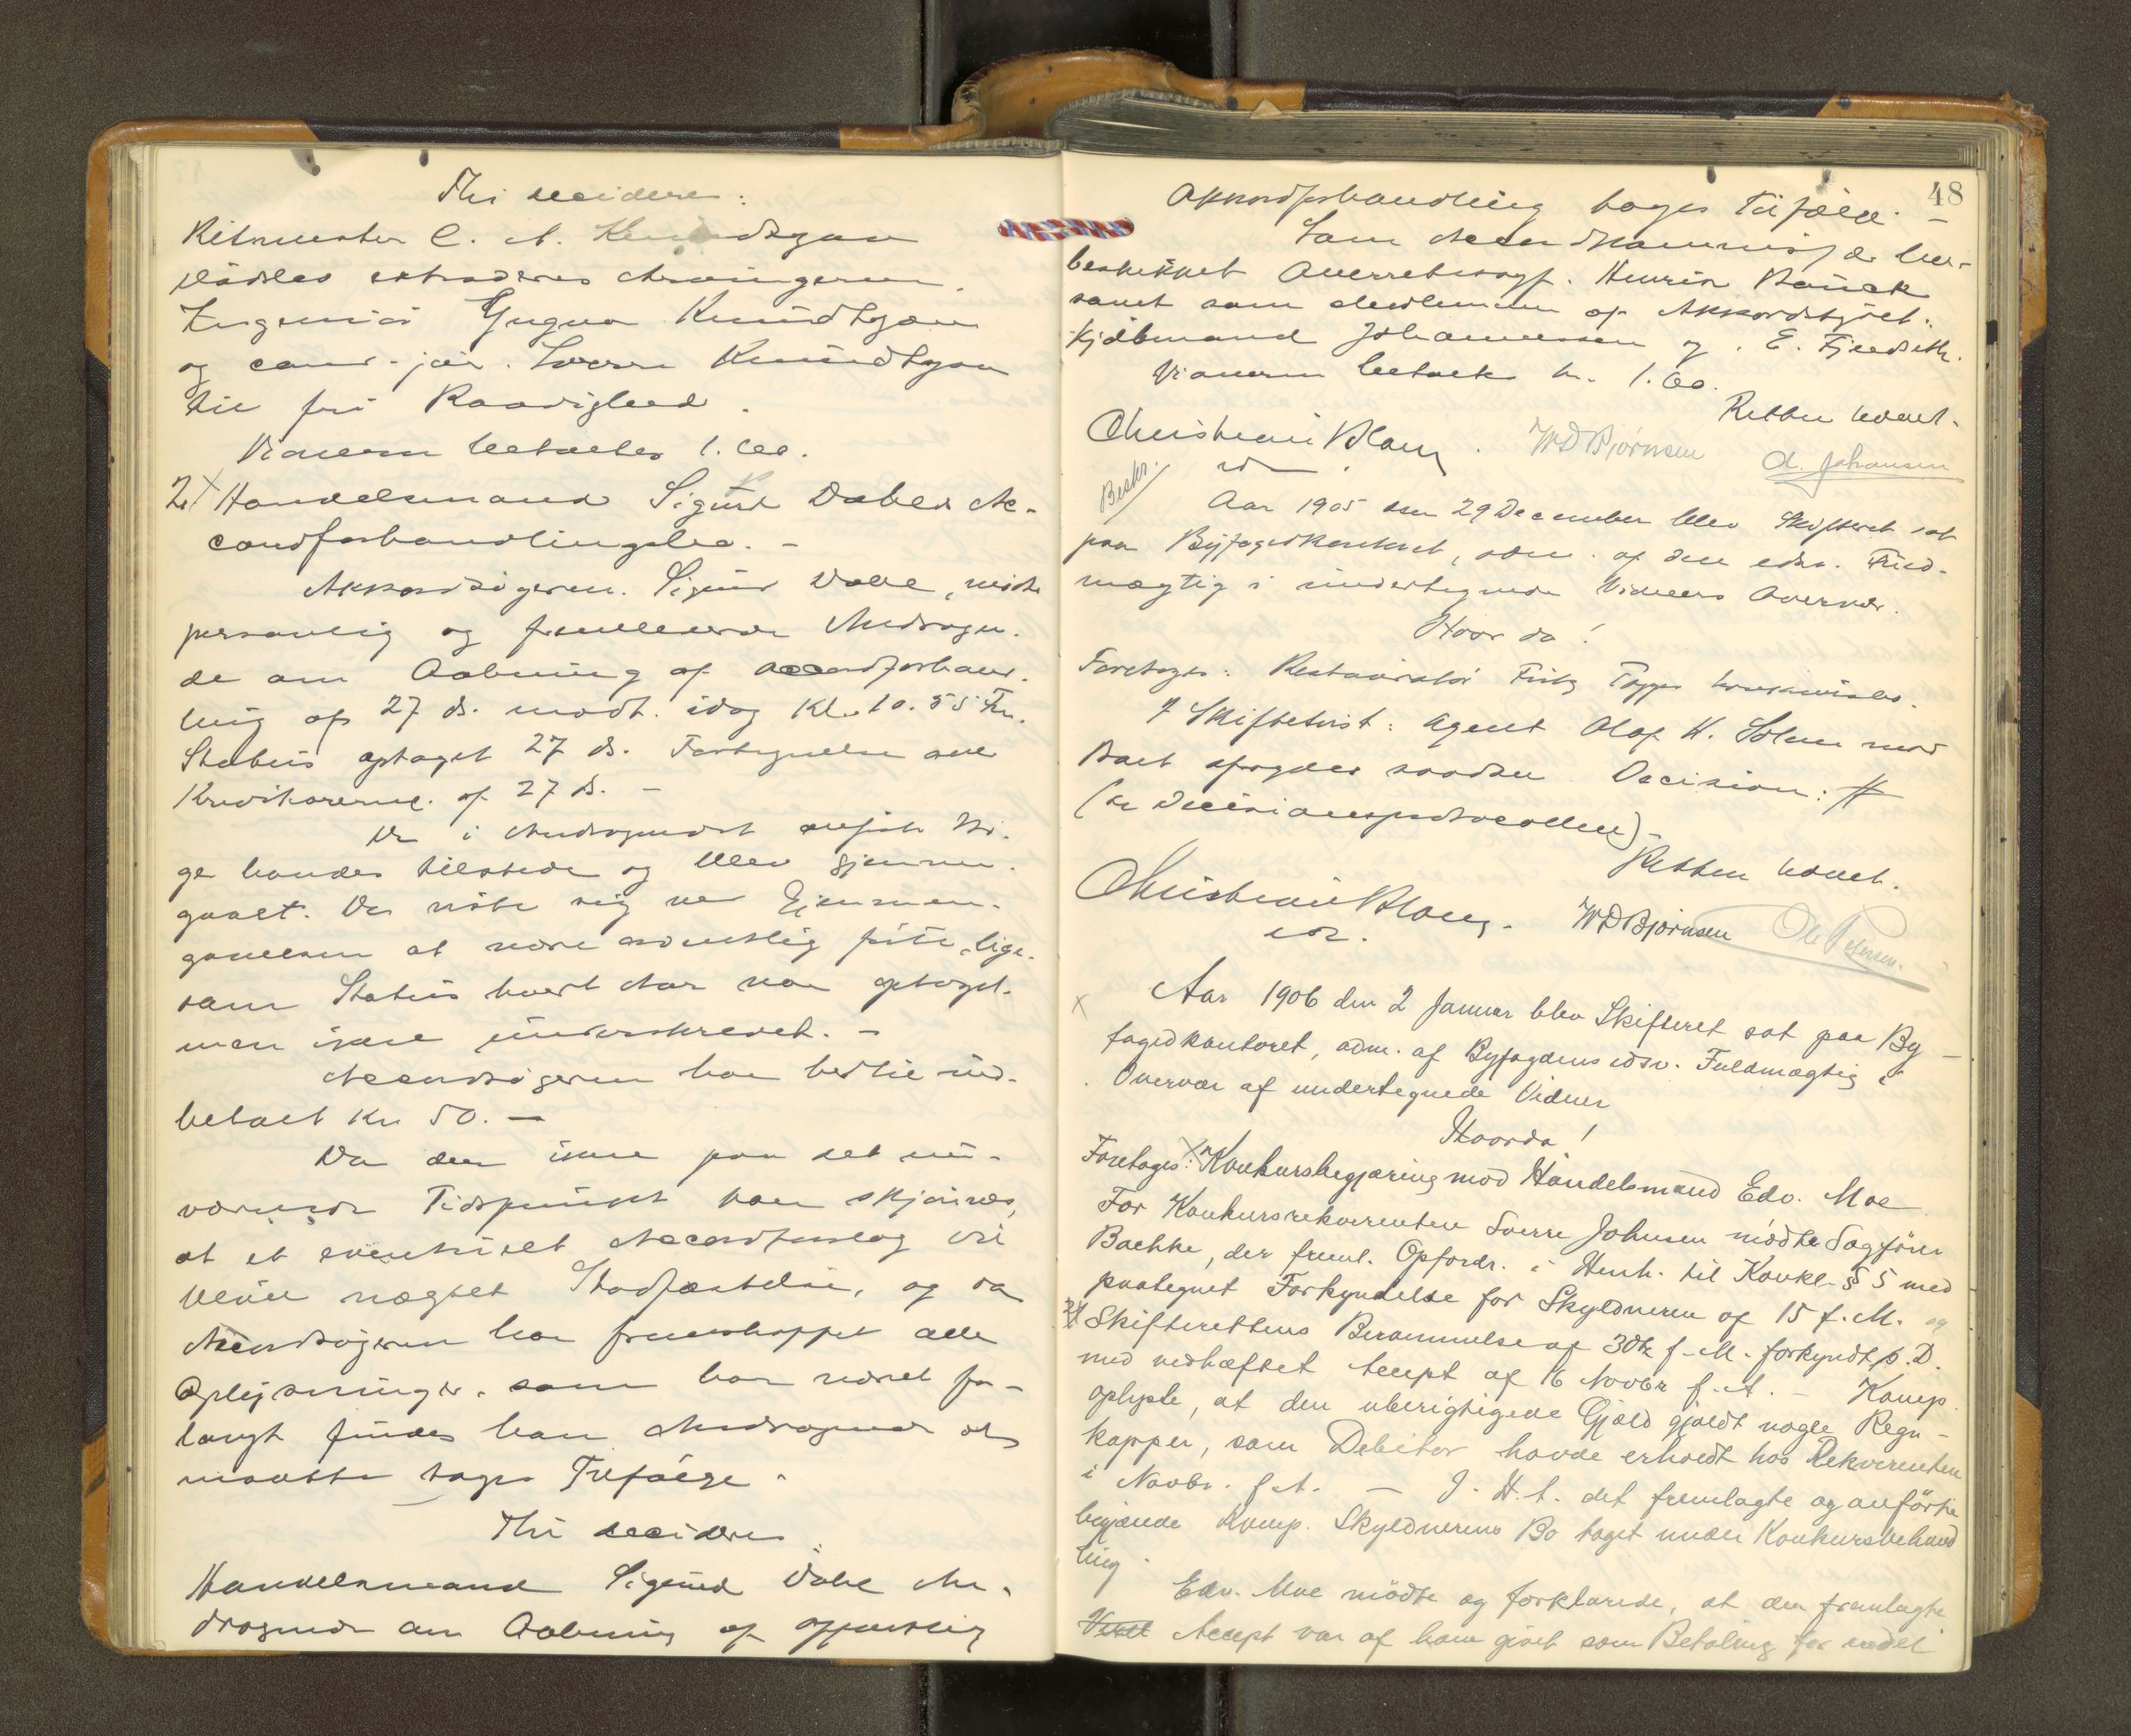 Thi decideres:
Ritmester C. A. Knudtzon
Dödsbo extraderes Arvingerne
Ingeniör Yngvar Knudtzon
og cand. jur. Sverre Knudtzon
til fri Raadighed.
Vidnerne betaltes 1.60.
2. Handelsmand Sigurd Dahls Ac-
cordforhandlingsbo. -
Akkordsögeren Sigurd Dahl, mödte
personlig og fremleverede Andragen-
de om Aabning af accordforhand-
ling af 27 ds. modt. idag Kl. 10.55 Fm.
Status optaget 27 ds. Fortegnelse over
Kreditorerne af 27 ds. -
De i Andragendet anförte Bö-
ger havdes tilstede og blev gjennem-
gaaet. De viste sig ved Gjennem-
gaaelsen at være ordentlig förte, lige-
som Status hvert Aar var optaget.
men ikke underskrevet. -
Accordsögeren har hertil ind-
betalt Kr 50. -
Da der ikke paa det nu-
værende Tidspunkt kan skjönnes,
at et eventuelt Accordforslag vil
blive nægtet Stadfæstelse, og da
Accordsögeren har fremskaffet alle
Oplysninger, som har været for-
langt findes hans Andragende at
maatte tages Tilfölge.
Thi decideres
Handelsmand Sigurd Dahls An-
dragende om Aabning af offentlig
48
Akkordforhandling tages Tilfölge. -
Som Accordkommissær be-
beskikket Overretssagf. Henrik Bauck
samt som Medlemmer af Akkordstyret:
Kjöbmand Johannessen og E. Fjeldseth.
Vidnerne betalte kr. 1.60.
Retten hævet.
Christian Blom WD Bjørnsen A. Johansen
cst.
Beskr.
Aar 1905 den 29 December blev Skifteret sat
paa Byfogedkontoret, adm. af den edsv. Fuld-
mægtig i undertegnede Vidners Overvær.
Hvor da!
Foretoges: Restauratör Fritz Konkursbo.
Skiftetvist: Agent Olaf K. Solem mod
Boet afsagdes saadan Decision: #
(se Decisionsprotocollen) -
Retten hævet.
Christian Blom. WD Bjørnsen Ole Petersen.
cst.
x Aar 1906 den 2 Januar blev Skifteret sat paa By-
fogedkontoret, adm. af Byfogdens edsv. Fuldmægtig i
Overvær af undertegnede Vidner
Hvorda!
Foretoges: Konkursbegjæring mod Handelsmand Edv. Moe
For Konkursrekvirenten Sverre Johnsen mödte Sagförer
Bachke, der freml. Opfordr. i Henh. til Konkl. § 5 med
paategnet Forkyndelse for Skyldneren af 15 f. M. og
Skifterettens Berammelse af 30te f. M. forkyndt s. D.
med vedhæftet Accept af 16 Novbr f. A. - Komp.
oplyste, at den uberigtigede Gjæld gjældt nogle Regn-
kapper, som Debitor havde erholdt hos Rekvirenten
i Novbr. f. A. - I H. t. det fremlagte og anförte
begjærede Komp. Skyldnerens Bo taget under Konkursbehand
ling.
Edv. Moe mödte og forklarede, at den fremlagte
Accept var af ham givet som Betaling for endel